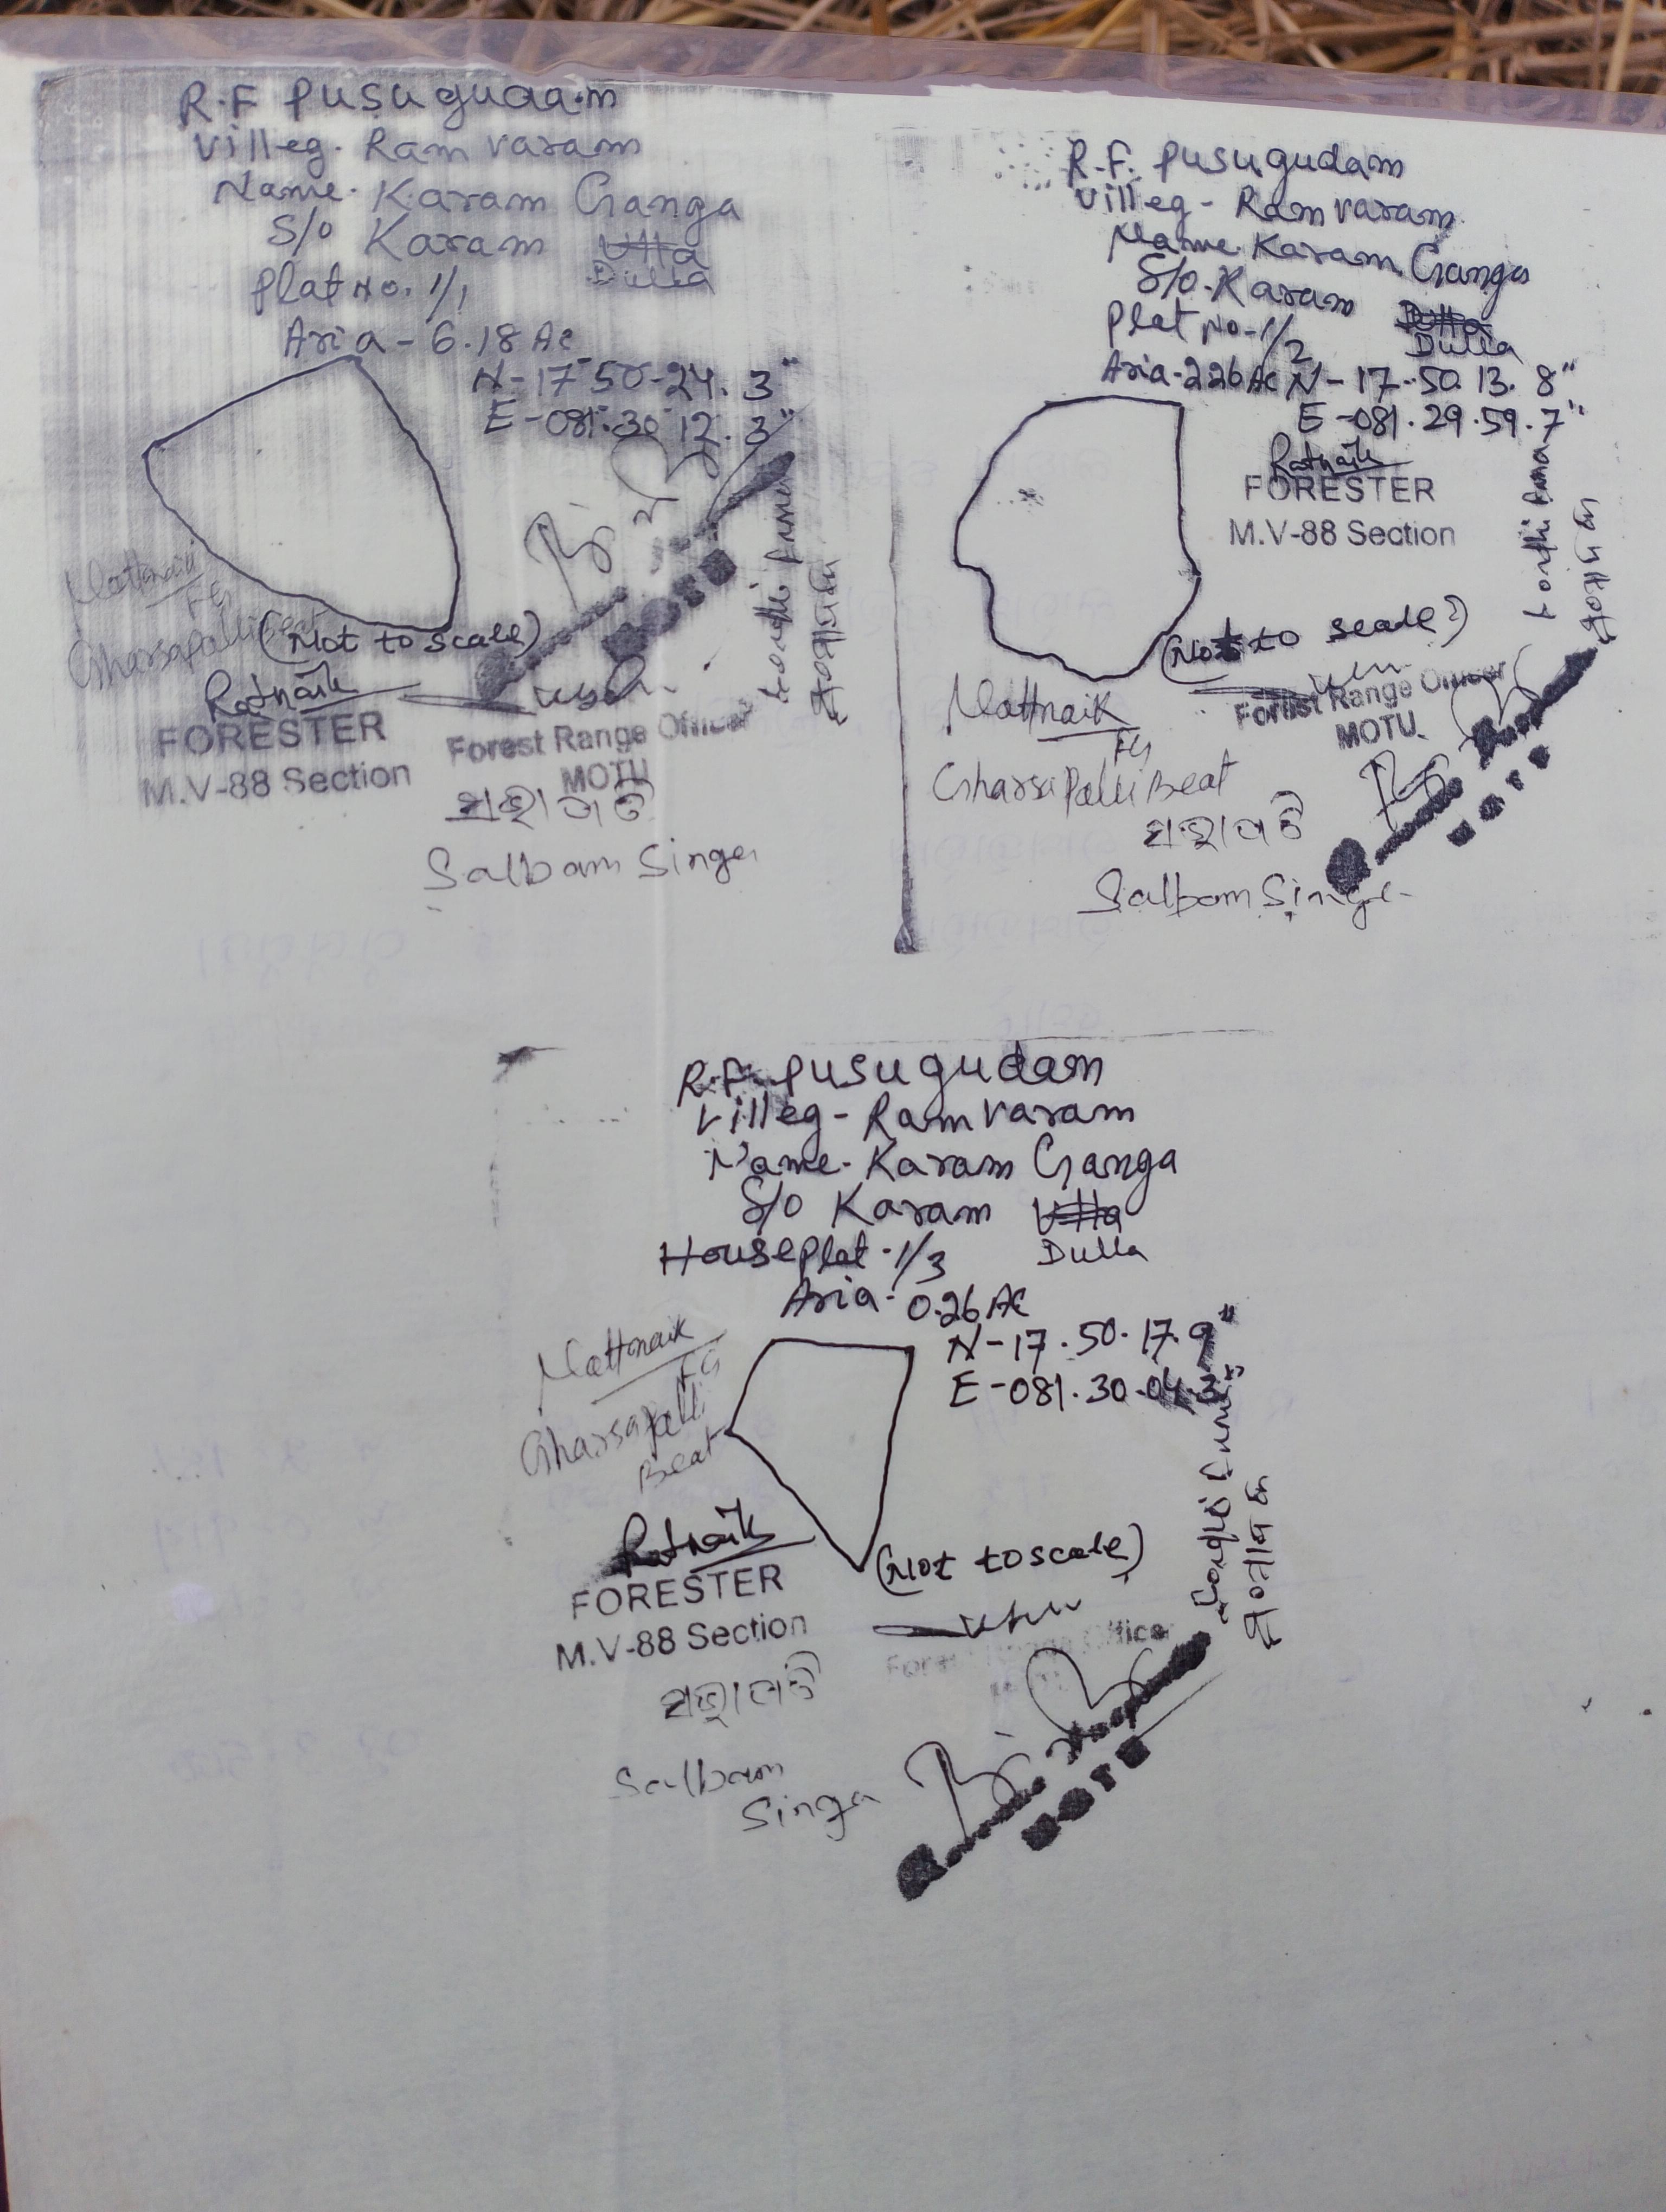 R.F Pusugudam
Villeg. Ramvaram
Name. Karam Ganga
S/o Karam Utta
Dulla
Plat No. 1/1
Aria - 6.18 Ac
N-17-50-24.3"
E-081-30-12.3"
(Not to scale)
Gharsapalli Beat
Ratnaik
FORESTER
M.V-88 Section
Forest Range Officer
MOTU
ସଭାପତି
Salbam Singa
R.F. Pusugudam
Villeg - Ramvaram
Name. Karam Ganga
S/o. Karam
Dulla
Plat No-1/2
Aria-2.26 Ac N-17.50.13.8"
E-081.29.59.7"
Ratnaik
FORESTER
M.V-88 Section
(Not to scale)
Forest Range Officer
MOTU
Nattnaik
FG
Gharsapalli Beat
ସଭାପତି
Salbam Singa
R.F. Pusugudam
Villeg - Ramvaram
Name. Karam Ganga
S/o Karam Utta
Dulla
House Plat. 1/3
Aria. 0.26 Ac
N-17.50.17.9"
E-081.30.04.3"
Nattnaik
FG
Gharsapalli
Beat
(Not to scale)
Ratnaik
FORESTER
M.V-88 Section
Forest Range Officer
ସଭାପତି
Salbam
Singa